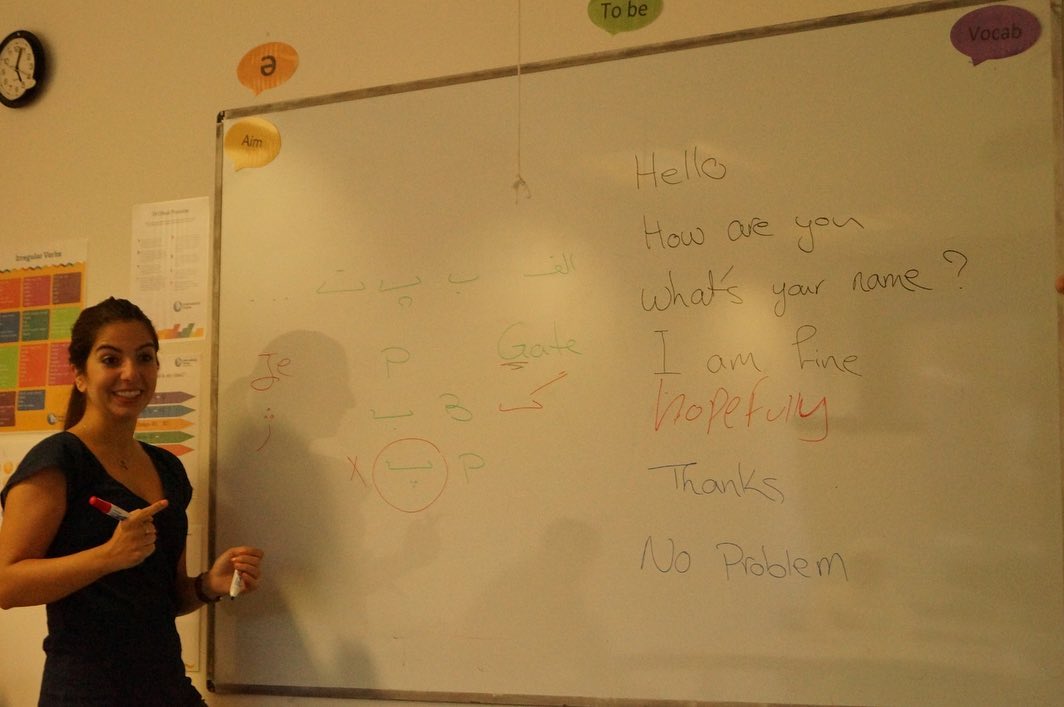 To be
Vocab
ə
Aim
Irregular Verbs
الف ب پ ت ...
Je P Gate
ژ ب B گ
X پ P
Hello
How are you
what's your name?
I am fine
hopefully
Thanks
No Problem